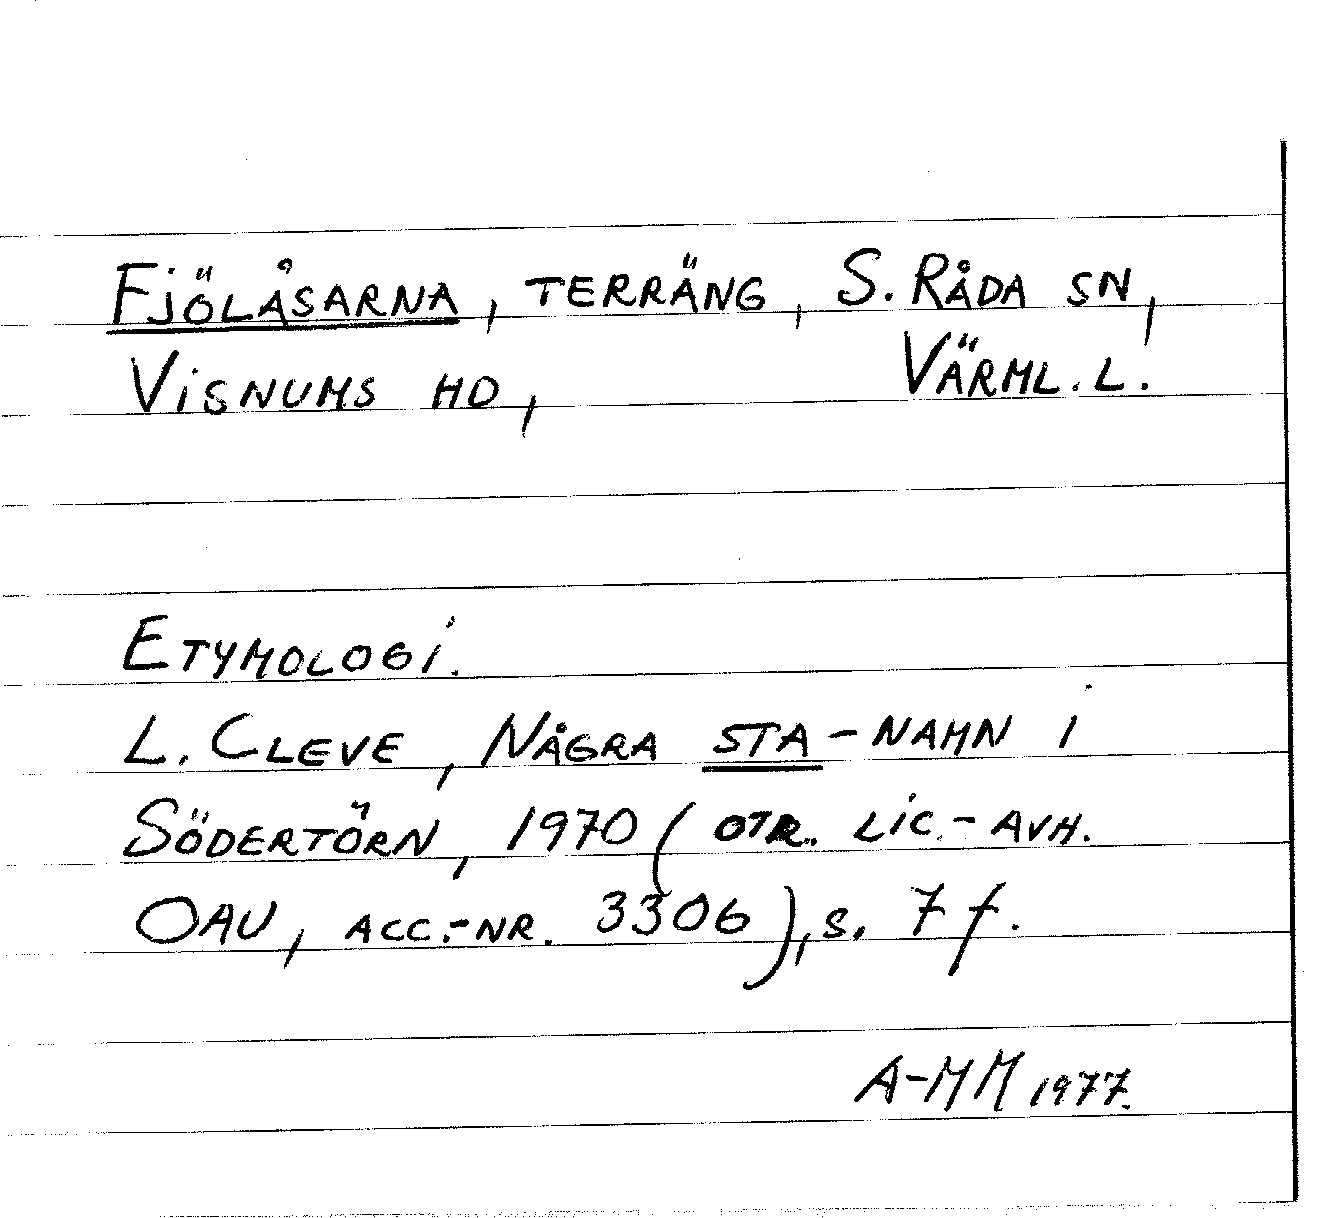 Fjölåsarna, terräng, S. Råda sn,
Visnums hd, Värml. l.
Etymologi.
L. Cleve, Några sta-namn i
Södertörn, 1970 (otr. lic.-avh.
OAU, acc.-nr. 3306), s. 7 f.
A-MM 1977.